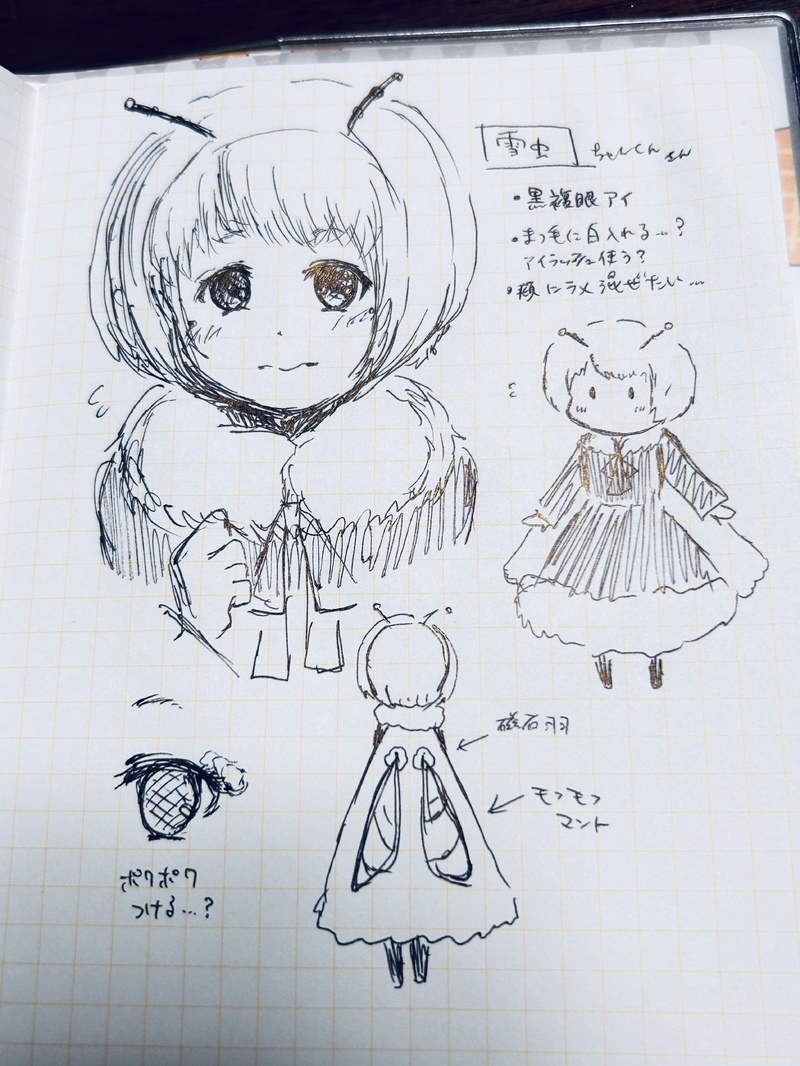 雪虫 ちゃんくんさん
・黒複眼アイ
・まつ毛に白入れる…?
アイラッシュ使う?
・頬にラメ混ぜたい…
磁石羽
モフモフ
マント
ポワポワ
つける…?